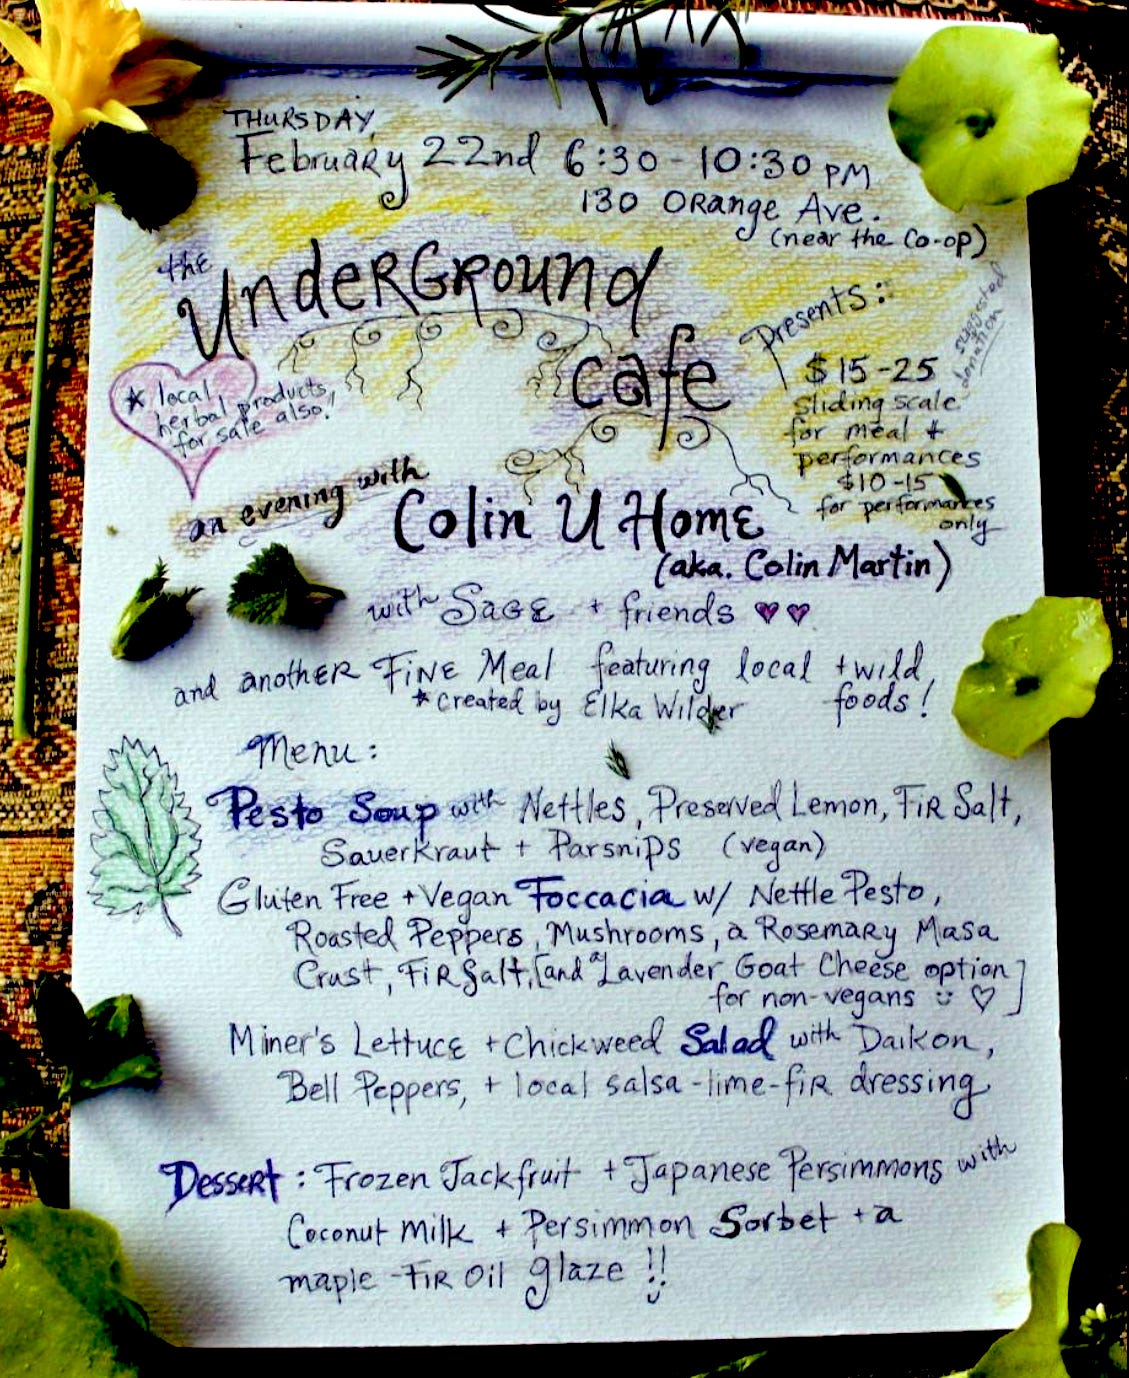 THURSDAY,
February 22nd 6:30-10:30 PM
130 Orange Ave.
(near the Co-op)
the Underground
cafe
Presents:
suggested
donation
$15-25
sliding scale
for meal +
performances
$10-15
for performances
only
* local
herbal products
for sale also!
an evening with
Colin U Home
(aka. Colin Martin)
with Sage + friends ♥♥
and another Fine Meal featuring local + wild
*created by Elka Wilder foods!
Menu:
Pesto Soup with Nettles, Preserved Lemon, Fir Salt,
Sauerkraut + Parsnips (vegan)
Gluten Free + Vegan Foccacia w/ Nettle Pesto,
Roasted Peppers, Mushrooms, a Rosemary Masa
Crust, Fir Salt, [and a Lavender Goat Cheese option
for non-vegans ☺ ♡]
Miner's Lettuce + Chickweed Salad with Daikon,
Bell Peppers, + local salsa-lime-fir dressing
Dessert: Frozen Jackfruit + Japanese Persimmons with
Coconut Milk + Persimmon Sorbet + a
maple-Fir Oil glaze!!